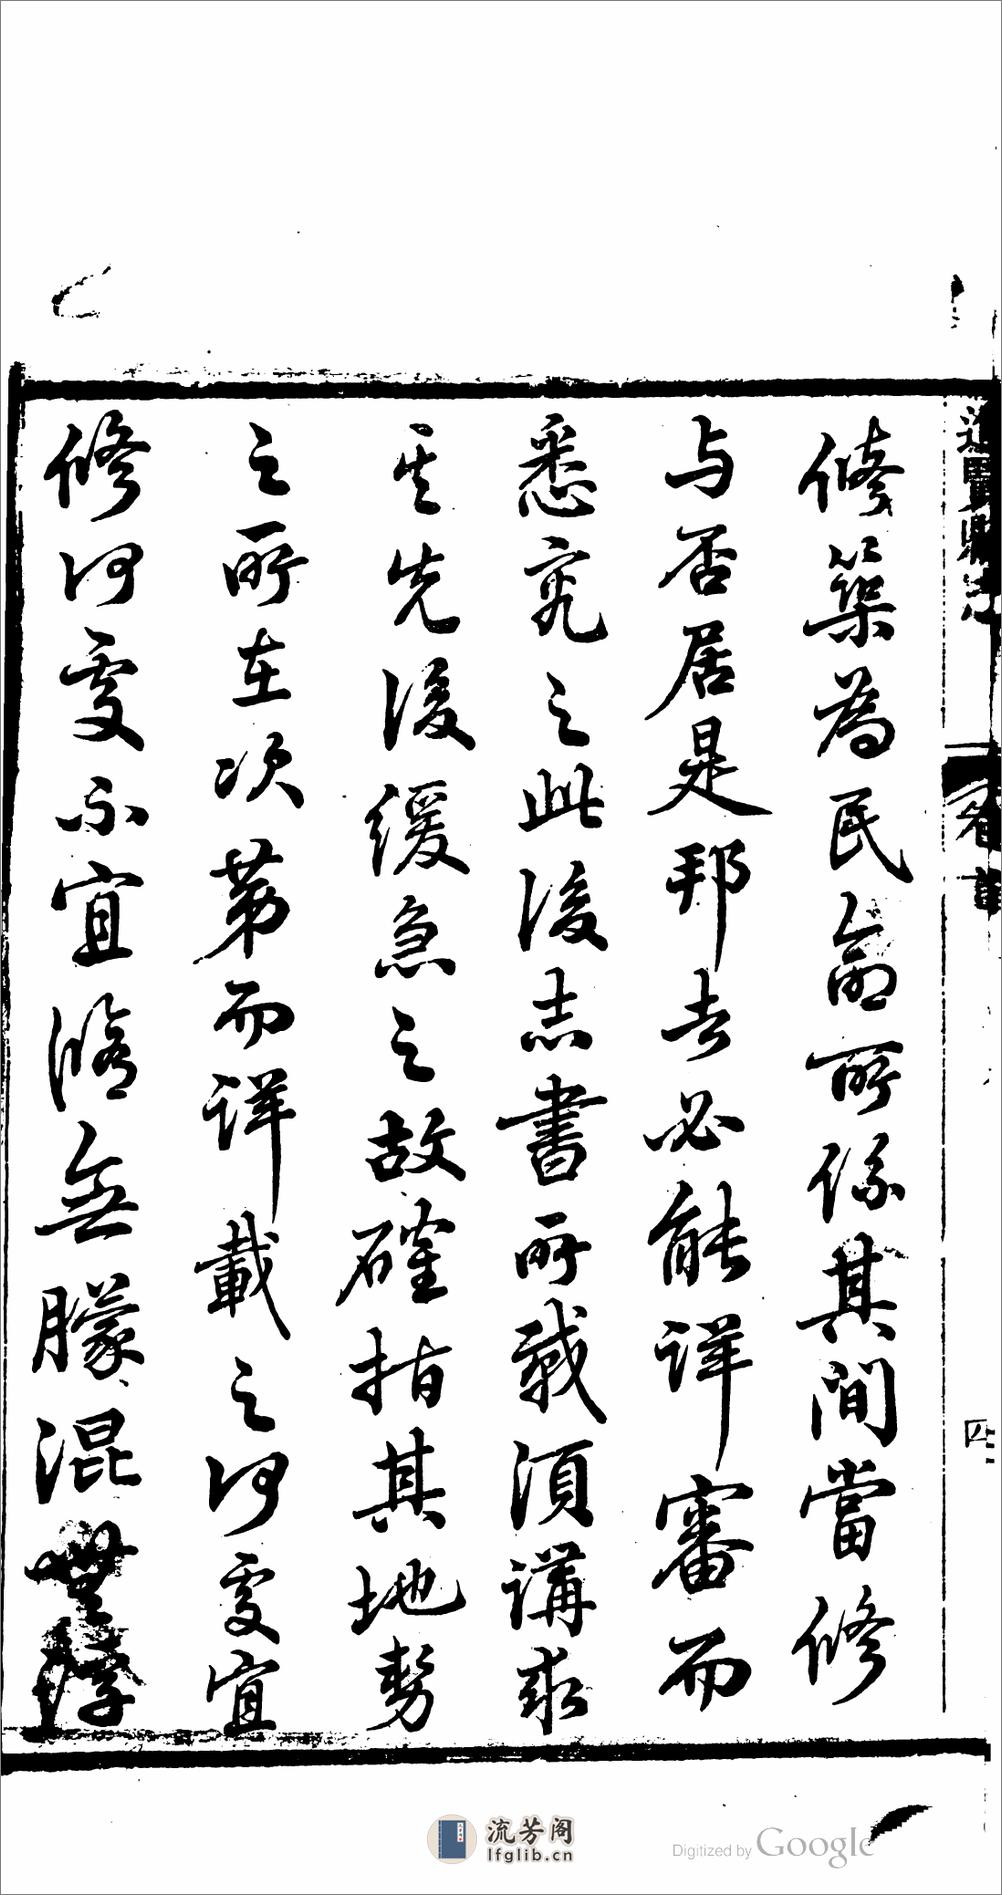 進賢縣志
卷首
四
修築為民命所係其間當修
与否居是邦者必能詳審而
悉究之此後志書所載須講求
其先後緩急之故確指其地勢
之所在次第而詳載之何處宜
修何處不宜修無朦混無浮
流芳阁
lfglib.cn
Digitized by Google